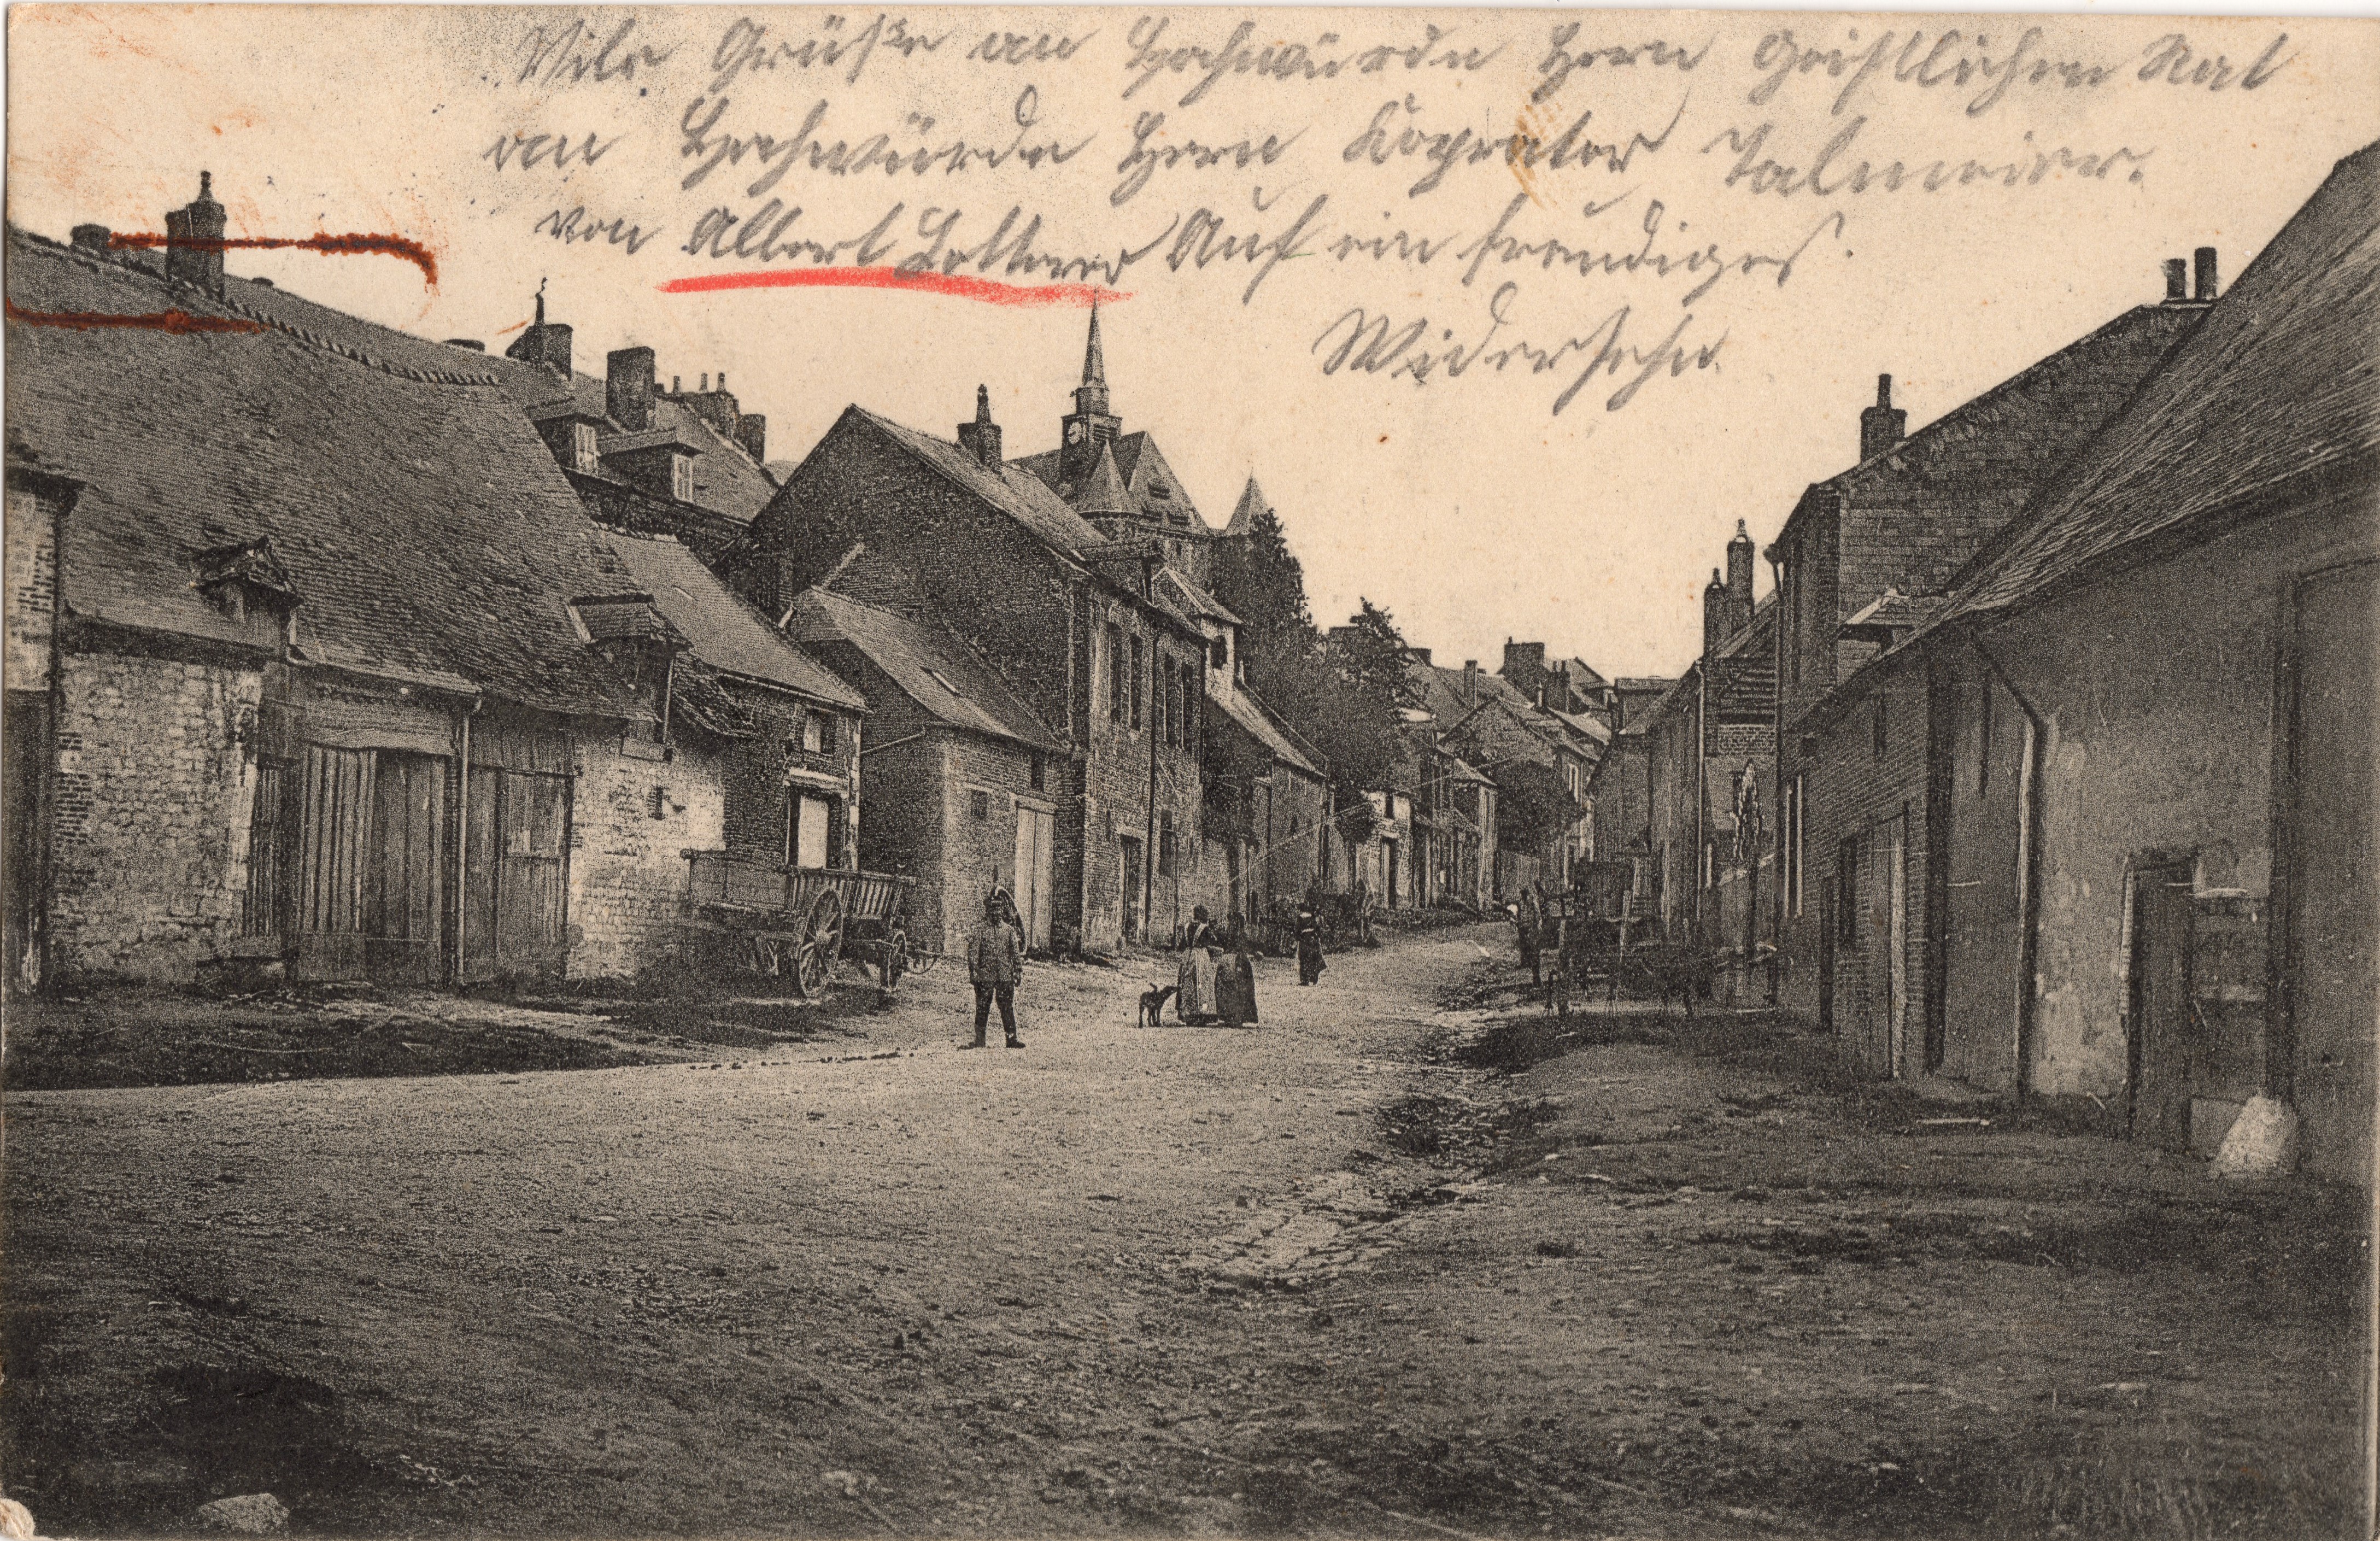 Vile Grüße an Hochwürdn Hern Geistlichen Rat
an Hochwürdn Hern Koprator Talmeier.
von Albert Lotterer Auf ein freudiges
Widersehn